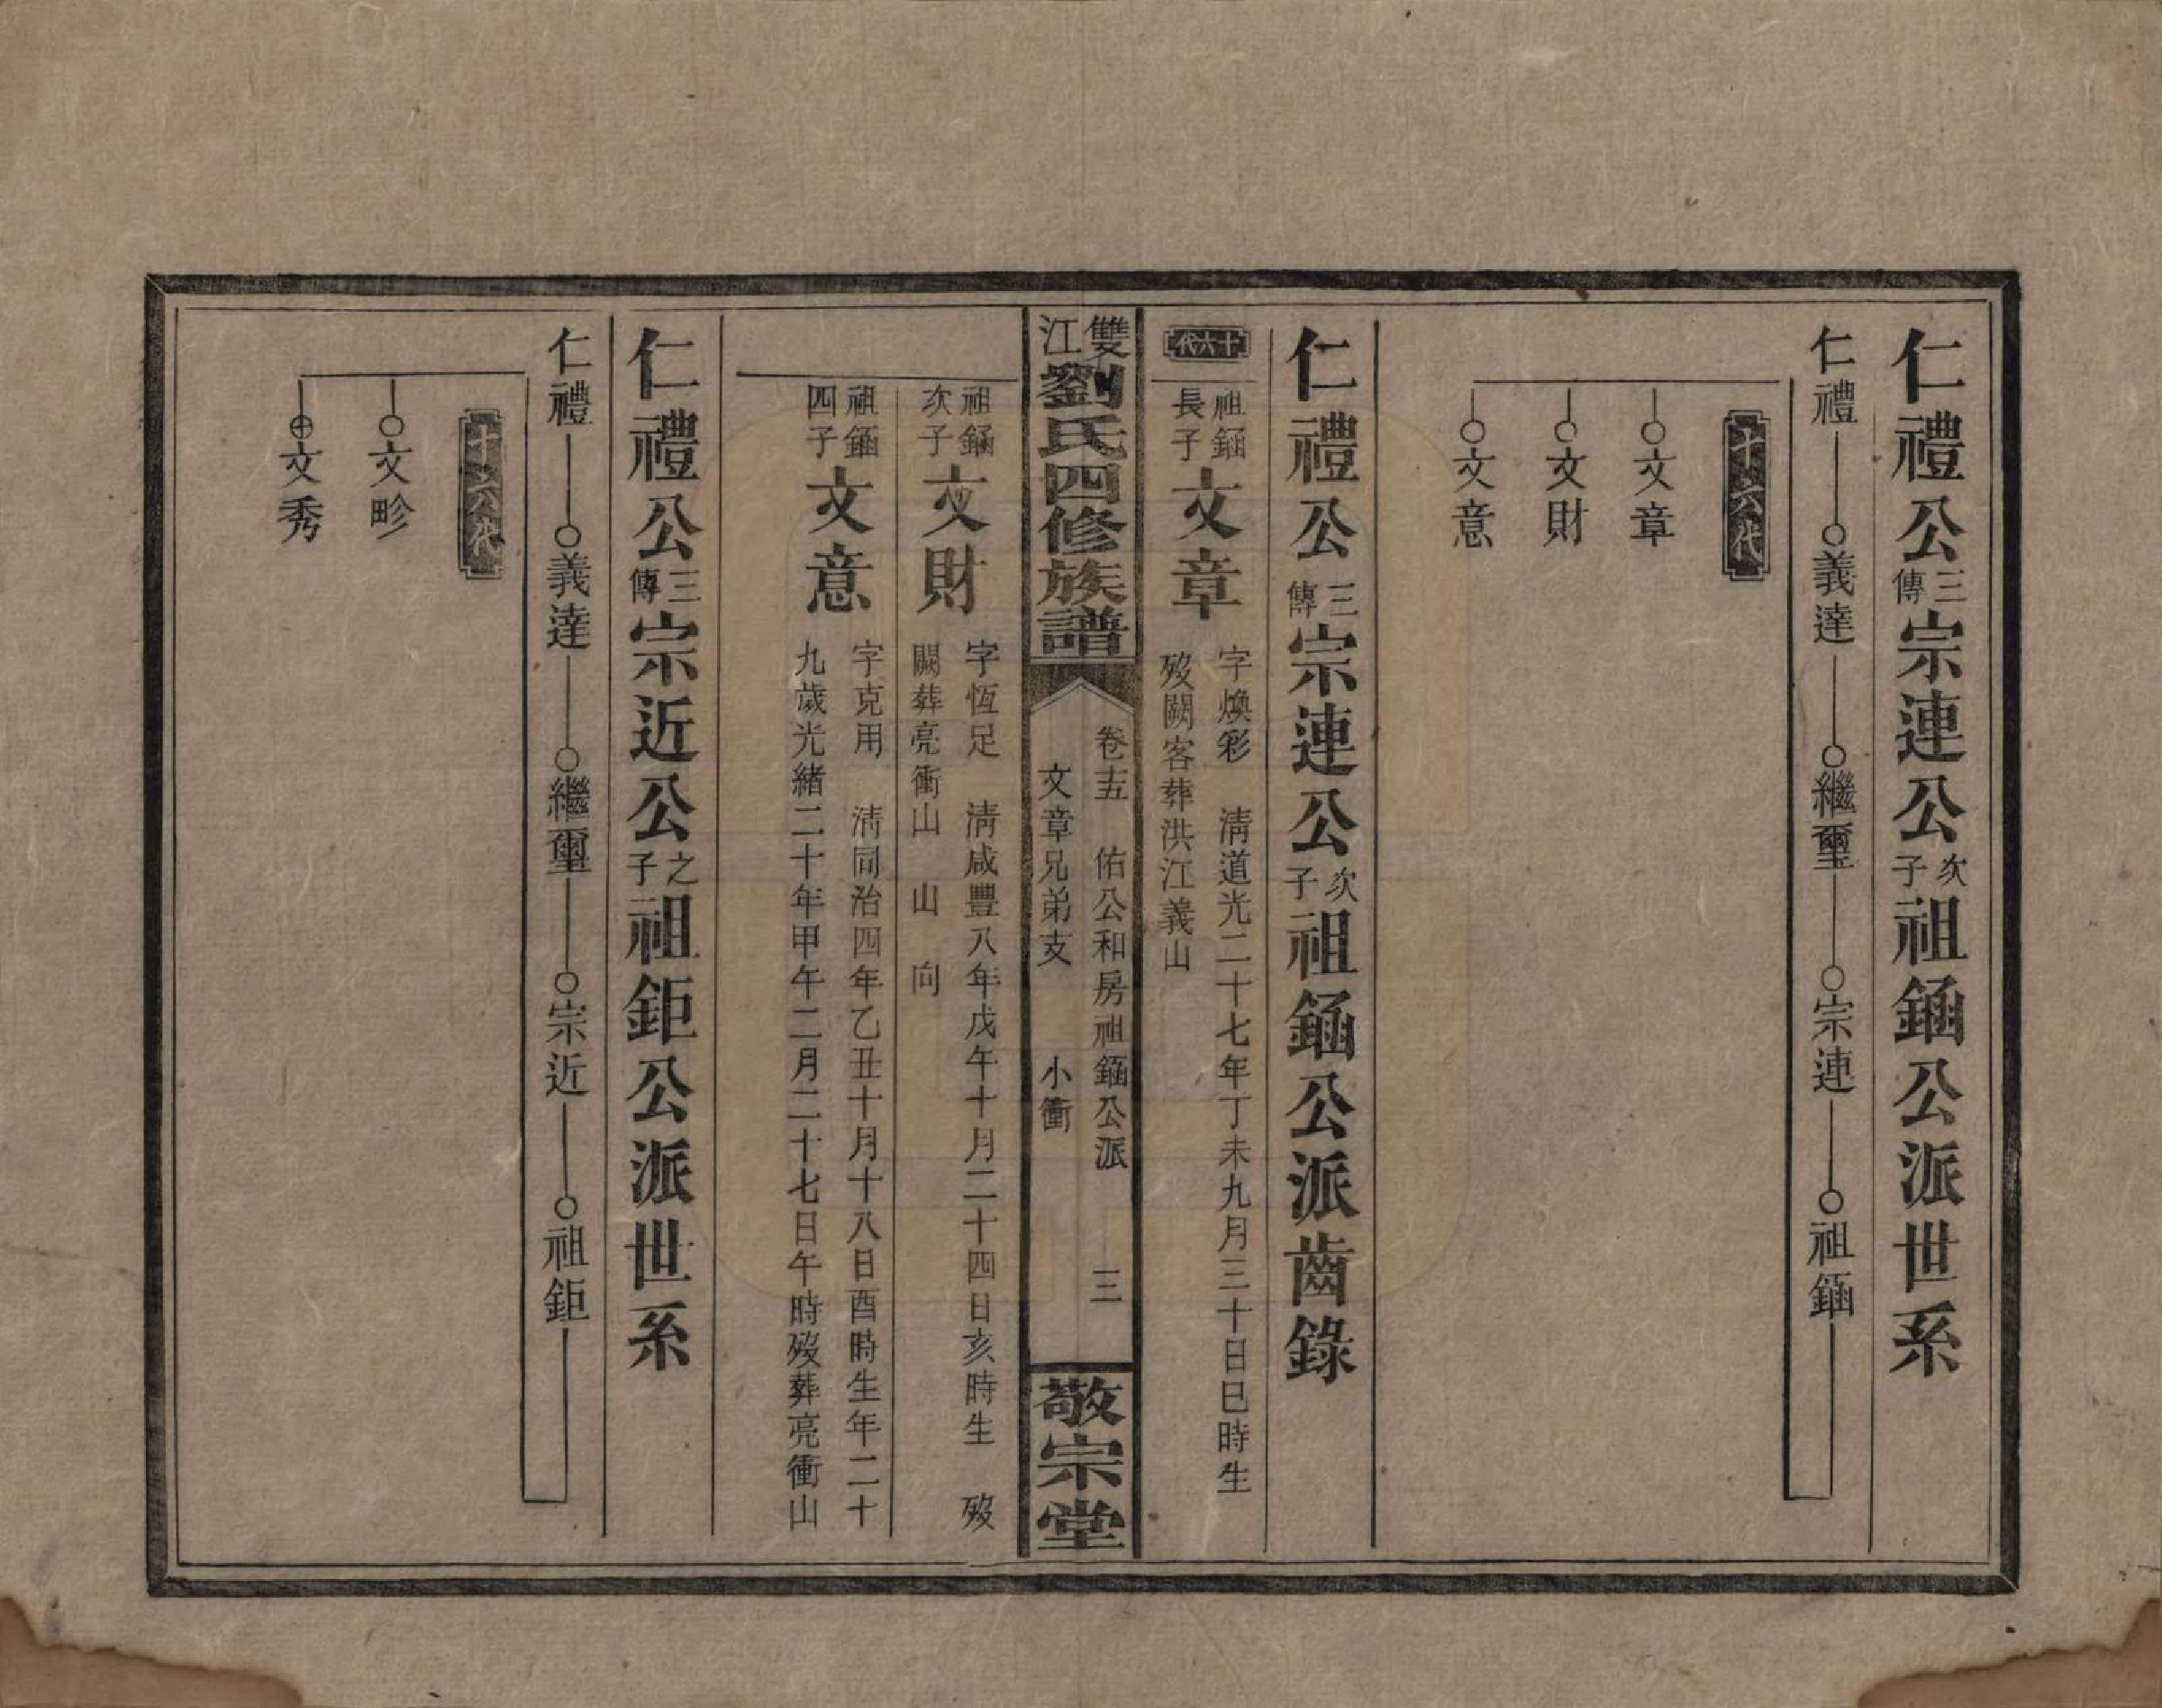 仁禮公三傳宗連公次子祖鋪公派世系
仁禮 義達 繼璽 宗連 祖鋪
十六代
文章
文財
文意
仁禮公三傳宗連公次子祖鋪公派齒錄
十六代
祖鋪長子文章 字煥彩 清道光二十七年丁未九月三十日巳時生
歿闕客葬洪江義山
雙江劉氏四修族譜
卷十五 佑公和房祖鋪公派 三
文章兄弟支 小衝
敬宗堂
祖鋪次子文財 字恆足 清咸豐八年戊午十月二十四日亥時生 歿
闕葬亮衝山 山 向
祖鋪四子文意 字克用 清同治四年乙丑十月十八日酉時生年二十
九歲光緒二十年甲午二月二十七日午時歿葬亮衝山
仁禮公三傳宗近公之子祖鉅公派世系
仁禮 義達 繼璽 宗近 祖鉅
十六代
文畛
文秀